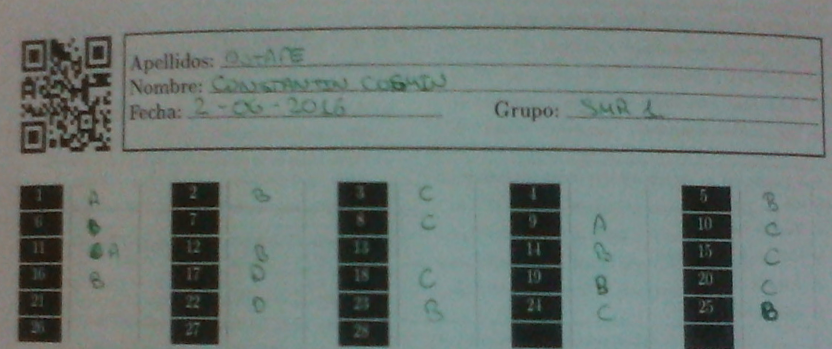 Apellidos:
Nombre: CONSTANTIN COSMIN
Fecha: 2-06-2016 Grupo: SMR 1
1 A 2 B 3 C 4 5 B
6 B 7 8 C 9 A 10 C
11 A 12 B 13 14 B 15 C
16 B 17 D 18 C 19 B 20 C
21 22 D 23 B 24 C 25 B
26 27 28